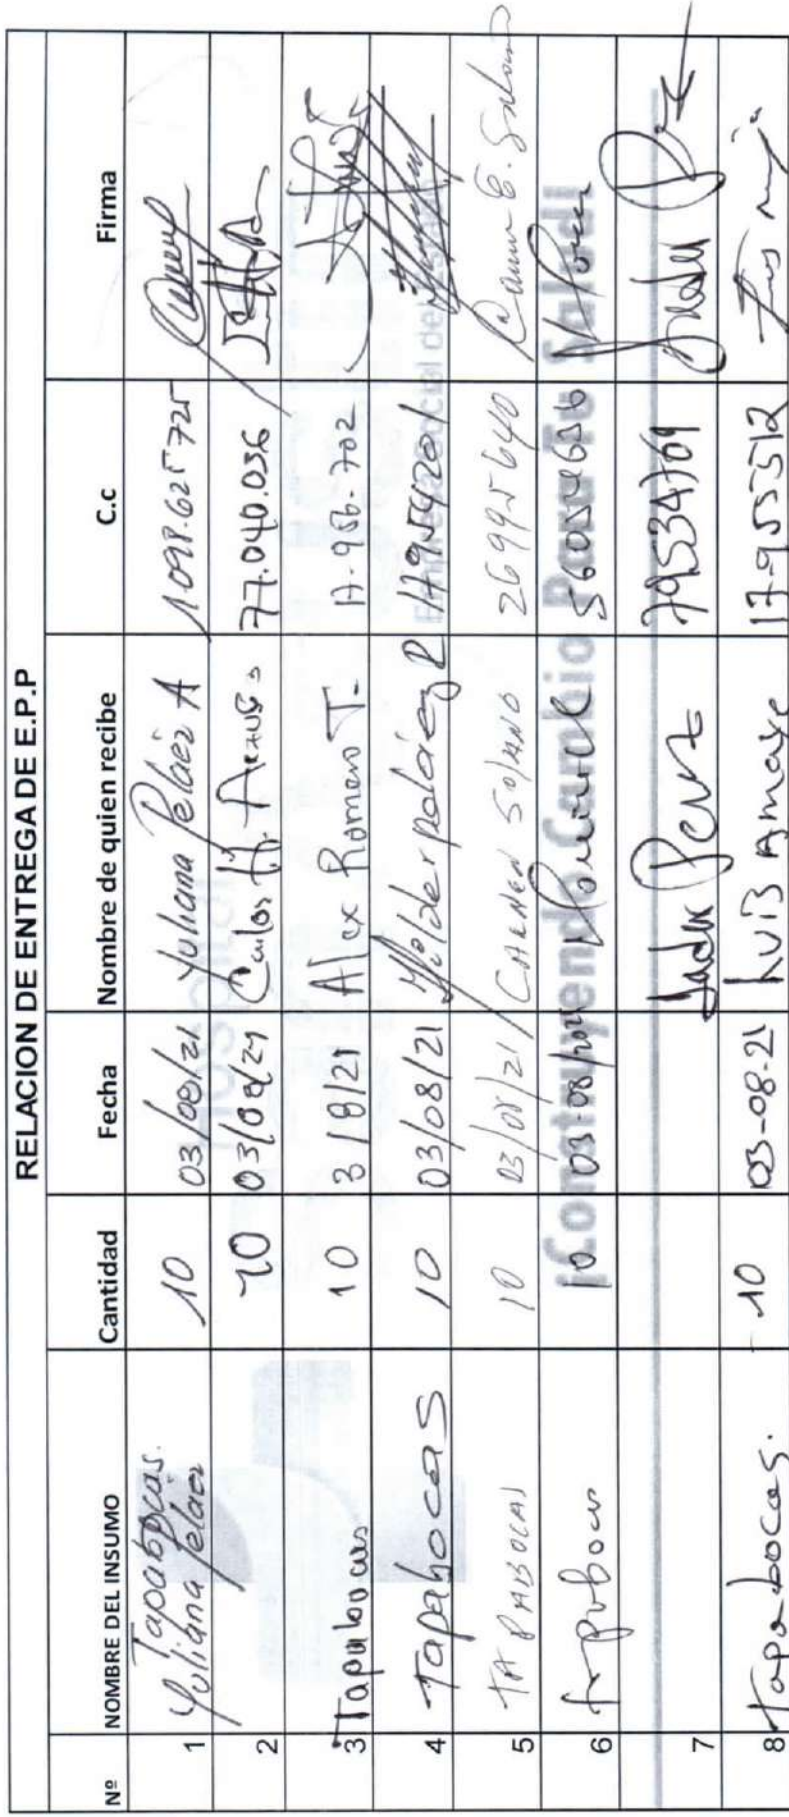 RELACION DE ENTREGA DE E.P.P
Nº NOMBRE DEL INSUMO Cantidad Fecha Nombre de quien recibe C.c Firma
1 Tapabocas. Yuliana Peláez 10 03/08/21 Yuliana Peláez A 1098.625725
2 10 03/08/21 Carlos H. Araujo 77.040.036
3 Tapabocas 10 3/8/21 Alex Romero T. 17.956.702
4 Tapabocas 10 03/08/21 Hilder peláez R 17954201
5 TAPABOCAS 10 03/08/21 CARMEN SOLANO 26995640 Carmen E. Solano
6 10 03-08/2021 56054636
7 Perez 79534709
8 Tapabocas. 10 03-08-21 LUIS Amaya 17-955512
Hospital
Empresa Social del Estado
¡Construyendo Cambio Para Tu Salud!